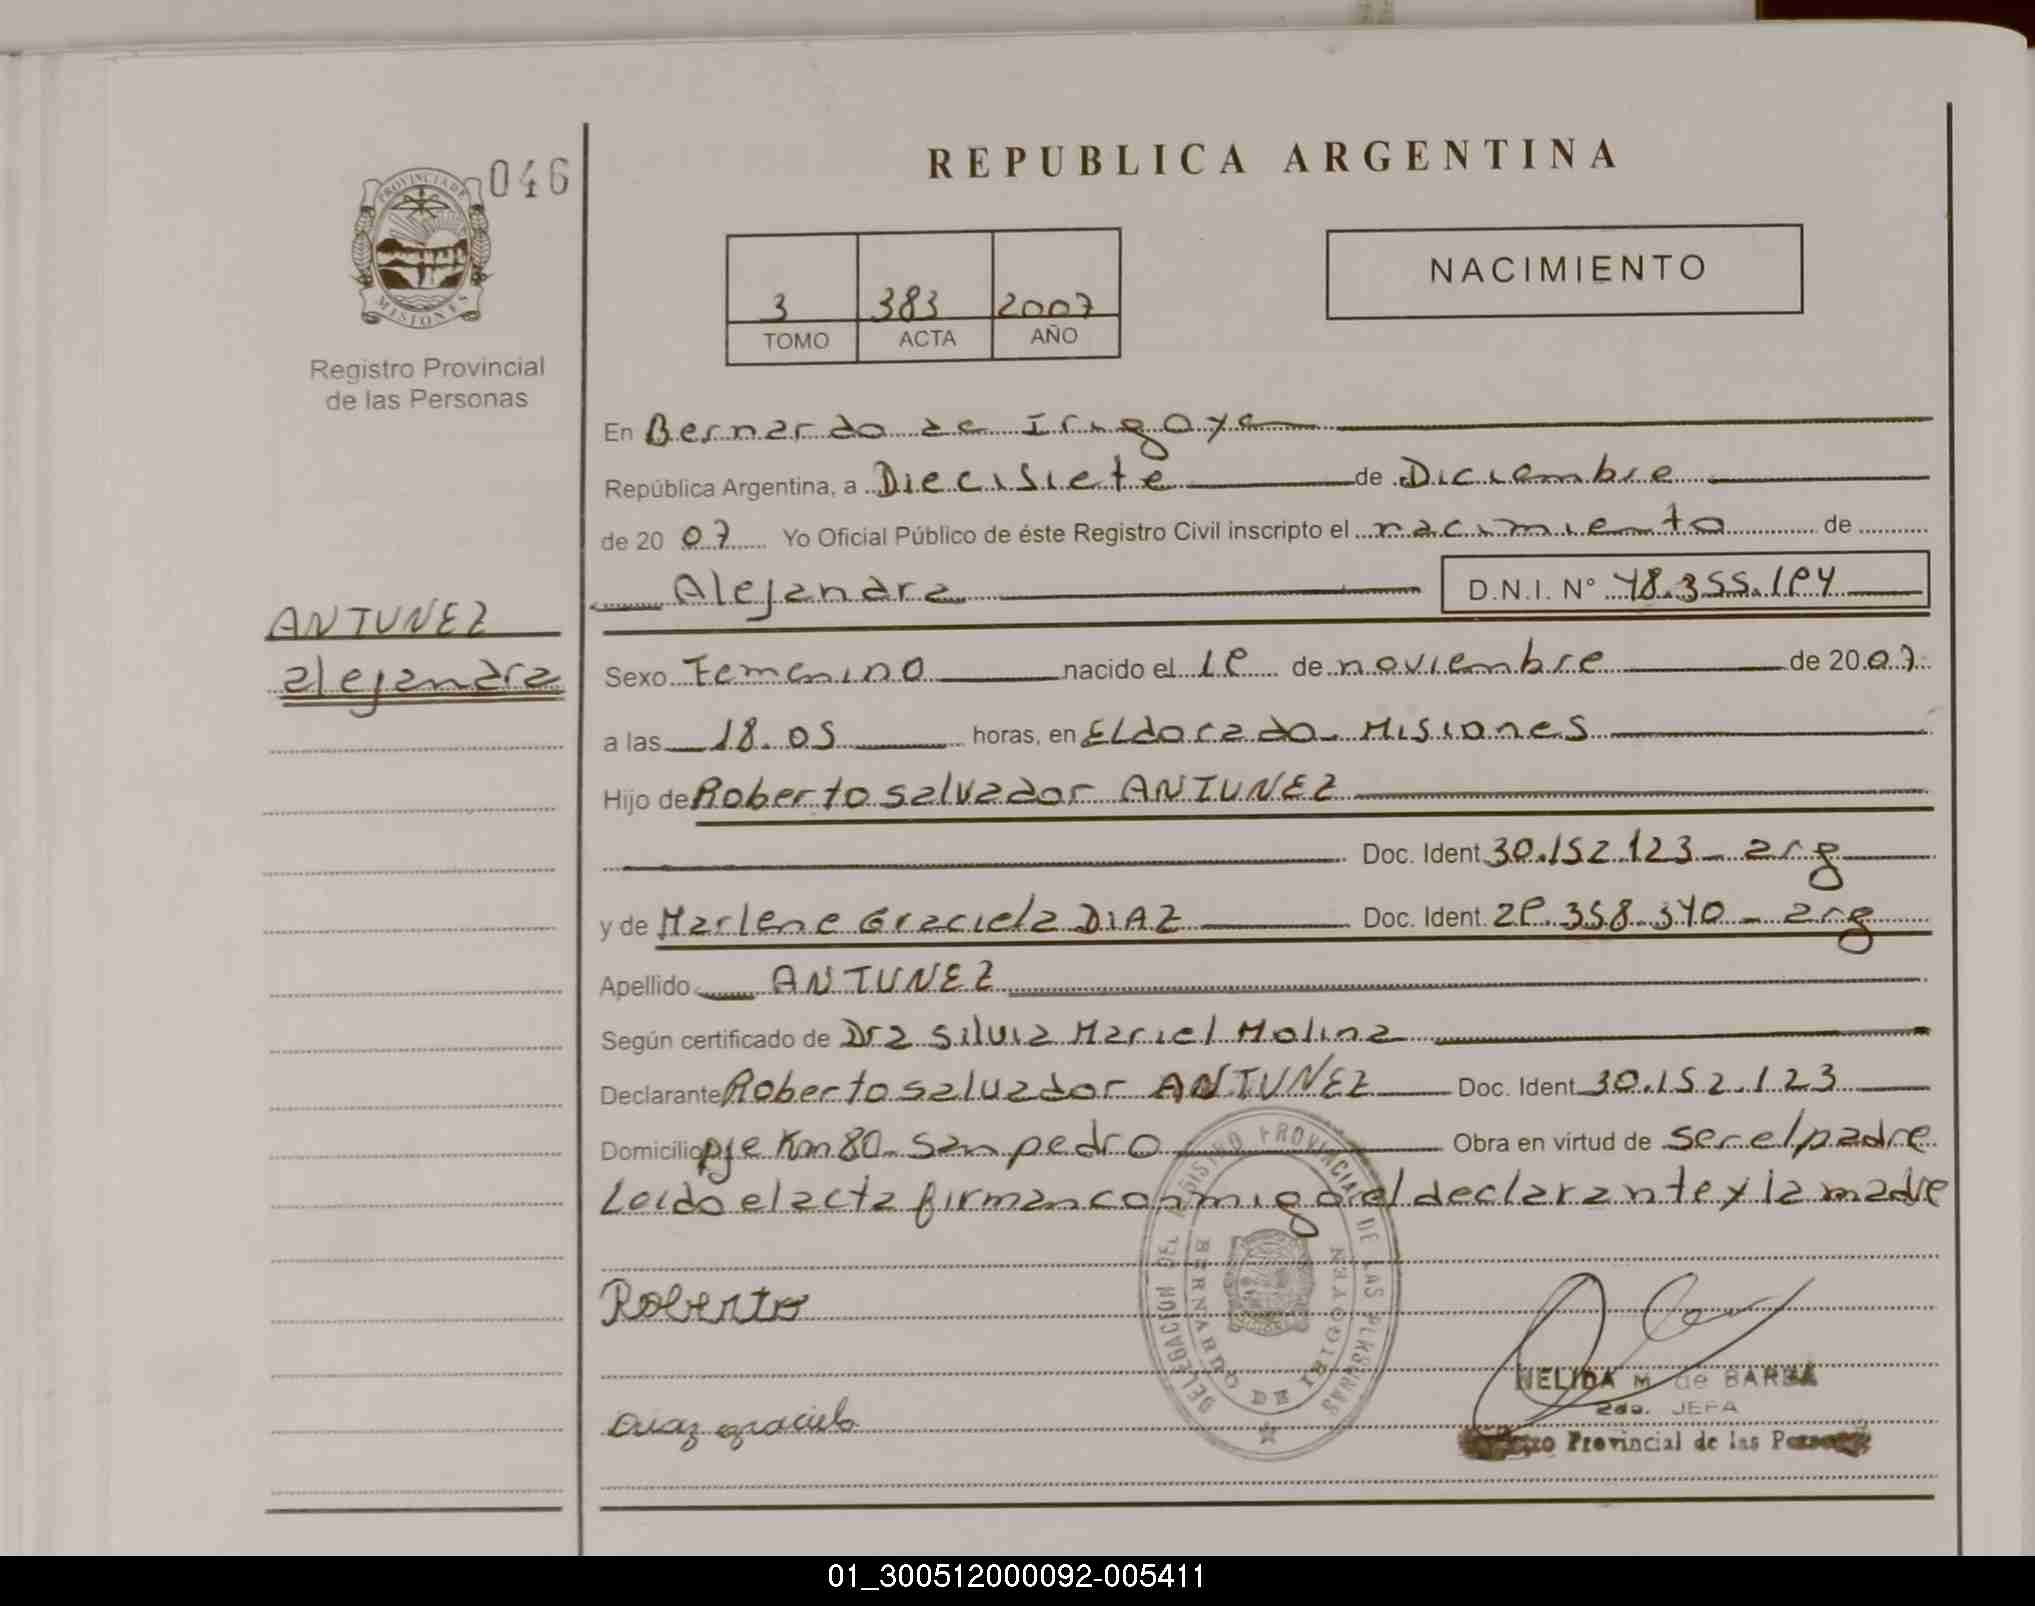 046
PROVINCIA DE
MISIONES
Registro Provincial
de las Personas
ANTUNEZ
alejandra
REPUBLICA ARGENTINA
3 383 2007
TOMO ACTA AÑO
NACIMIENTO
En Bernardo de Irigoyen
República Argentina, a Diecisiete de Diciembre
de 2007 Yo Oficial Público de éste Registro Civil inscripto el nacimiento de
Alejandra D.N.I. N° 48.355.194
Sexo Femenino nacido el 19 de noviembre de 2007
a las 18.05 horas, en Eldorado Misiones
Hijo de Roberto Salvador ANTUNEZ
Doc. Ident. 30.152.123 - arg
y de Marlene Graciela DIAZ Doc. Ident. 29.358.340 - arg
Apellido ANTUNEZ
Según certificado de Dra Silvia Mariel Molina
Declarante Roberto Salvador ANTUNEZ Doc. Ident. 30.152.123
Domicilio pje Km 80 - San pedro Obra en virtud de ser el padre
Leido el acta firman conmigo el declarante y la madre
Roberto
DELEGACION DEL REGISTRO PROVINCIAL DE LAS PERSONAS
BERNARDO DE IRIGOYEN
NELIDA M. de BARBA
2do. JEFA
Provincial de las Personas
Diaz graciela
01_300512000092-005411